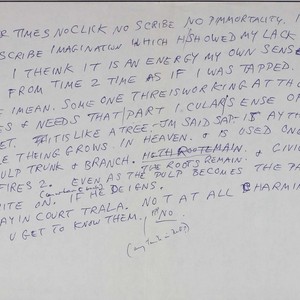 R TIMES NO CLICK NO SCRIBE NO PIMMORTALITY. I
SCRIBE IMAGINATION WHICH SHOWED MY LACK
I THEINK IT IS AN ENERGY MY OWN SENSE
FROM TIME 2 TIME AS IF I WAS TAPPED.
E MEAN. SOME ONE THRE IS WORKING AT TH
S & NEEDS THAT PART I.CULAR SENSE OR
ET. IT IS LIKE A TREE. JM SAID SAT IS AY TH
LE THEING GROWS IN HEAVEN. & IS USED ONE
ULP TRUNK & BRANCH. THE ROOTS REMAIN. & CIVIC
FIRES 2. EVEN AS THE PULP BECOMES THE PA
ITE ON. IF HE DEIGNS.
AY IN COURT TRALA. NOT AT ALL CHARMIN
U GET TO KNOW THEM. NO.